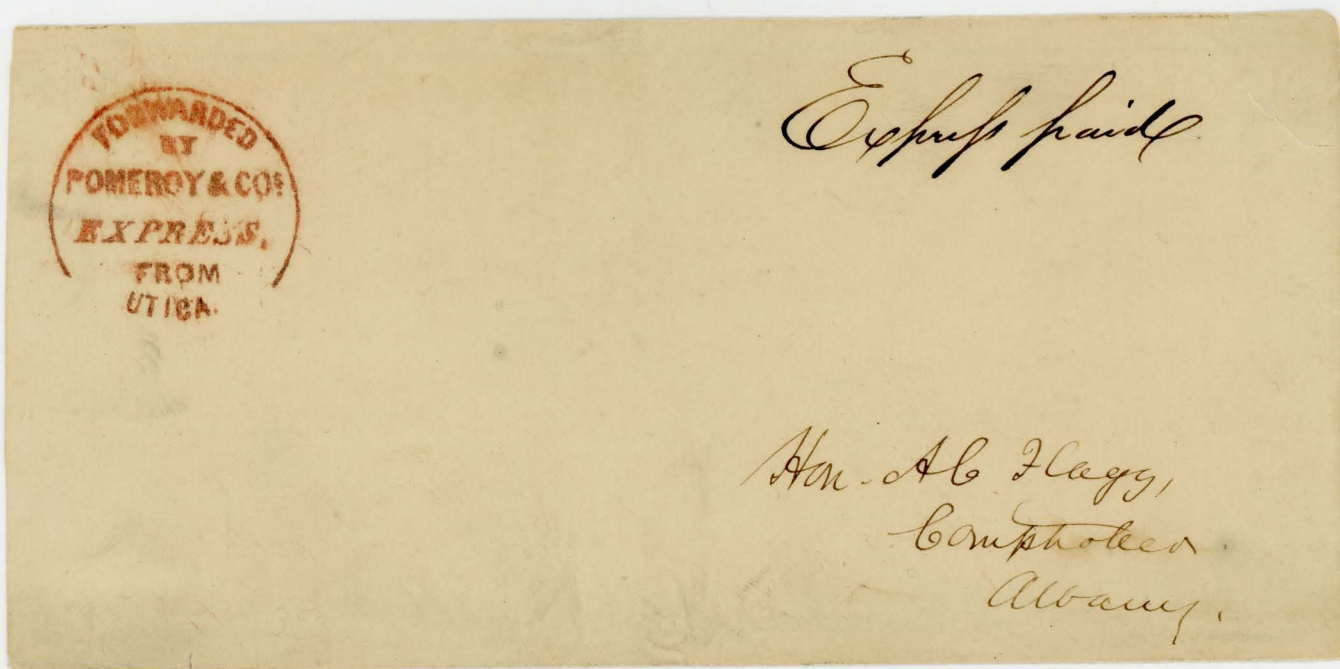 FORWARDED
BY
POMEROY & COs
EXPRESS,
FROM
UTICA.
Express paid
Hon. A C Flagg,
Comptroller
Albany.